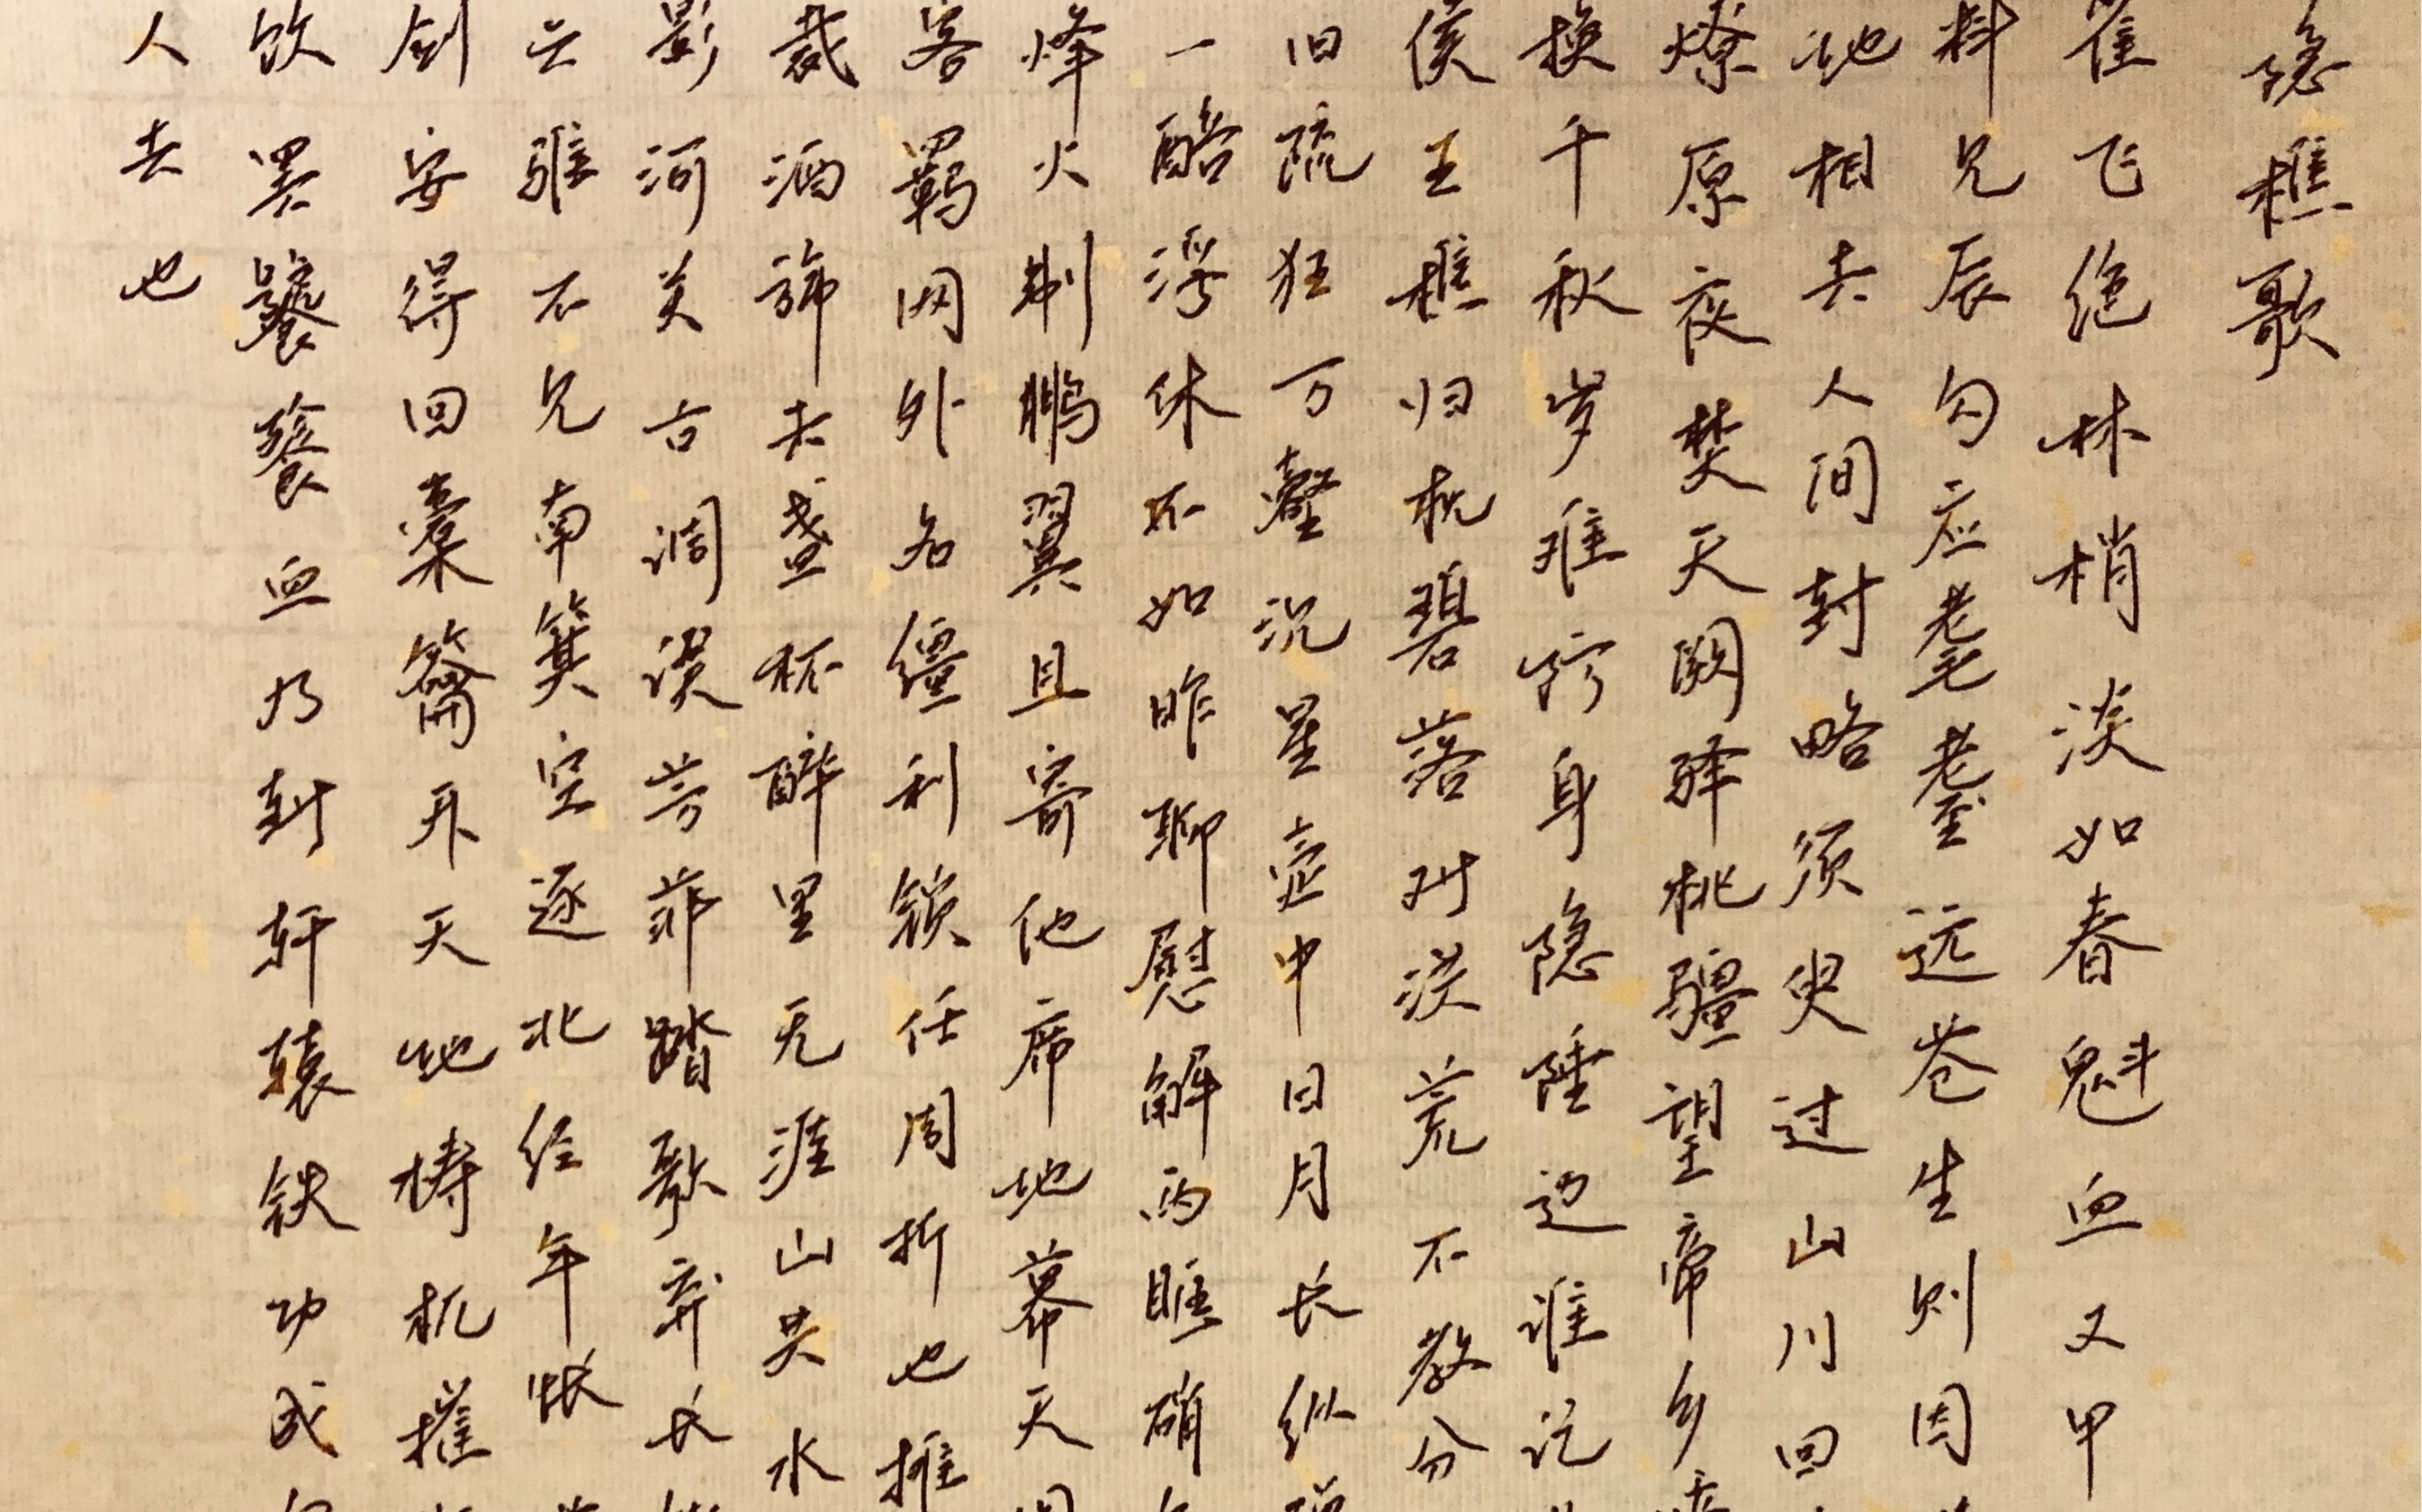 隐樵歌
雀飞绝林梢淡如春魁血又甲
料兄辰勾应耄耋远苍生则因
地相去人间封略须臾过山川回
燎原夜焚天阙驿桃疆望帝乡
换千秋岁难窍身隐陲边谁记
侯王樵归枕碧落对洪荒不教分
旧疏狂万壑沉星壶中日月长纵
一醅浮休不如昨聊慰解两睚眦
烽火制鹏翼且寄他席地幕天
客羁网外名缰利锁任周折也推
裁酒旆去盏杯醉里无涯山共水
影河关古调误芳菲踏歌弃长
云骓不兄南箕空逐北经年怅
剑安得回橐籥开天地梼杌摧
饮罢饕餮血乃封轩辕铁功成
人去也